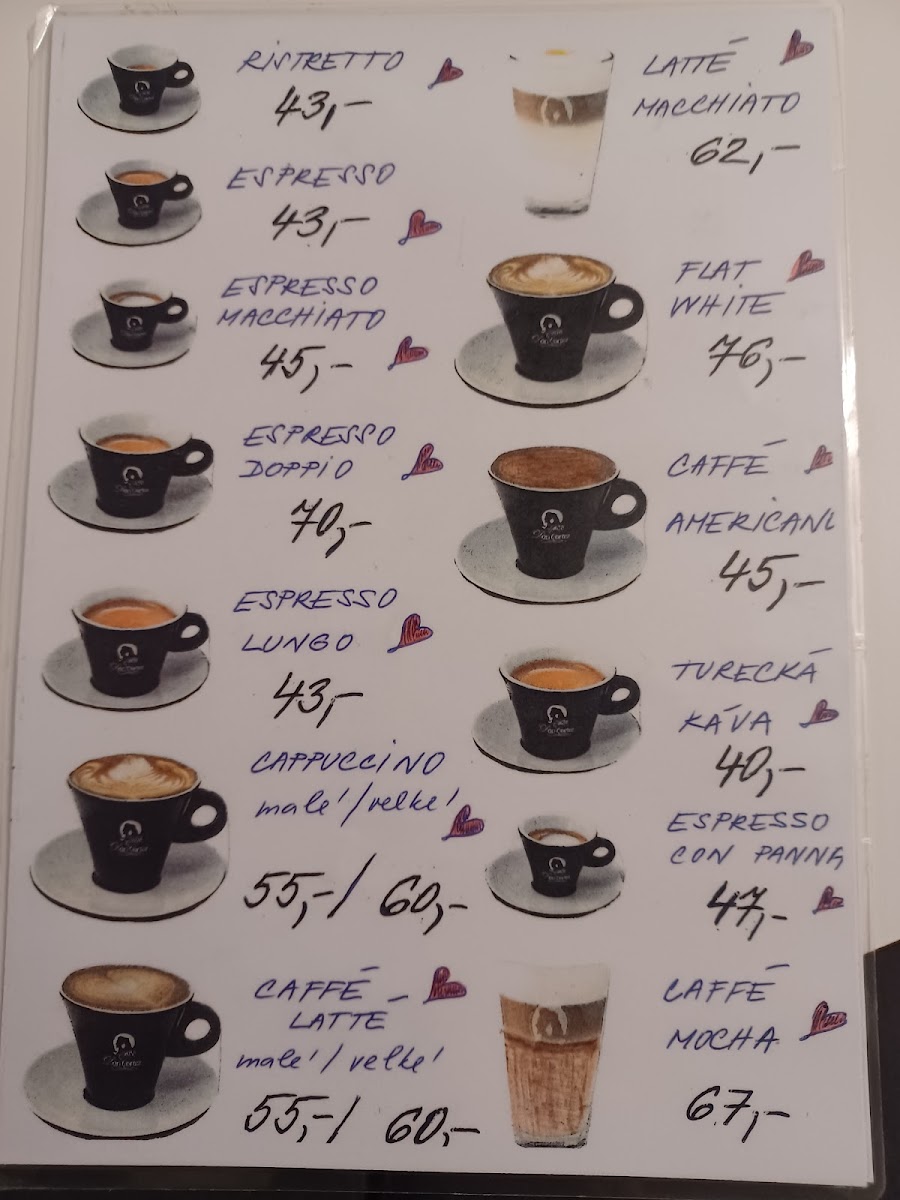 RISTRETTO
43,-
ESPRESSO
43,-
ESPRESSO
MACCHIATO
45,-
ESPRESSO
DOPPIO
70,-
ESPRESSO
LUNGO
43,-
CAPPUCCINO
malé/velké
55,-/ 60,-
CAFFÉ
LATTÉ
malé/velké
55,-/ 60,-
LATTÉ
MACCHIATO
62,-
FLAT
WHITE
76,-
CAFFÉ
AMERICANO
45,-
TURECKÁ
KÁVA
40,-
ESPRESSO
CON PANNA
47,-
CAFFÉ
MOCHA
67,-